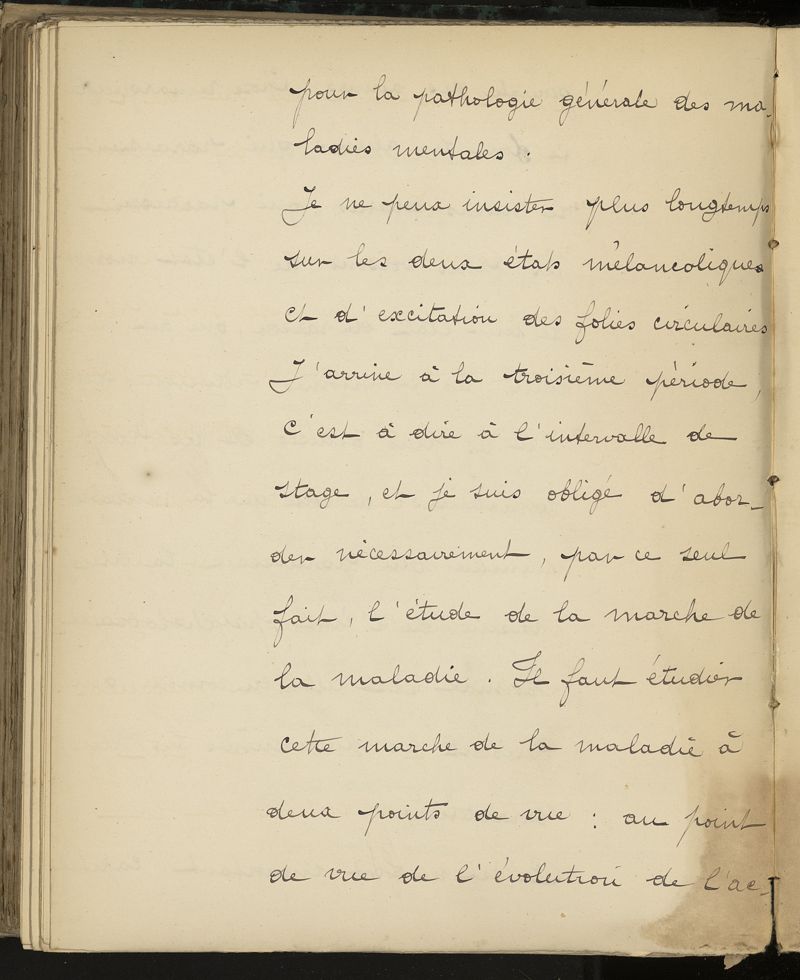 pour la pathologie générale des ma-
ladies mentales.
Je ne peux insister plus longtemps
sur les deux états mélancoliques
et d'excitation des folies circulaires
J'arrive à la troisième période,
c'est à dire à l'intervalle de
stage, et je suis obligé d'abor-
der nécessairement, par ce seul
fait, l'étude de la marche de
la maladie. Il faut étudier
cette marche de la maladie à
deux points de vue : au point
de vue de l'évolution de l'ac-